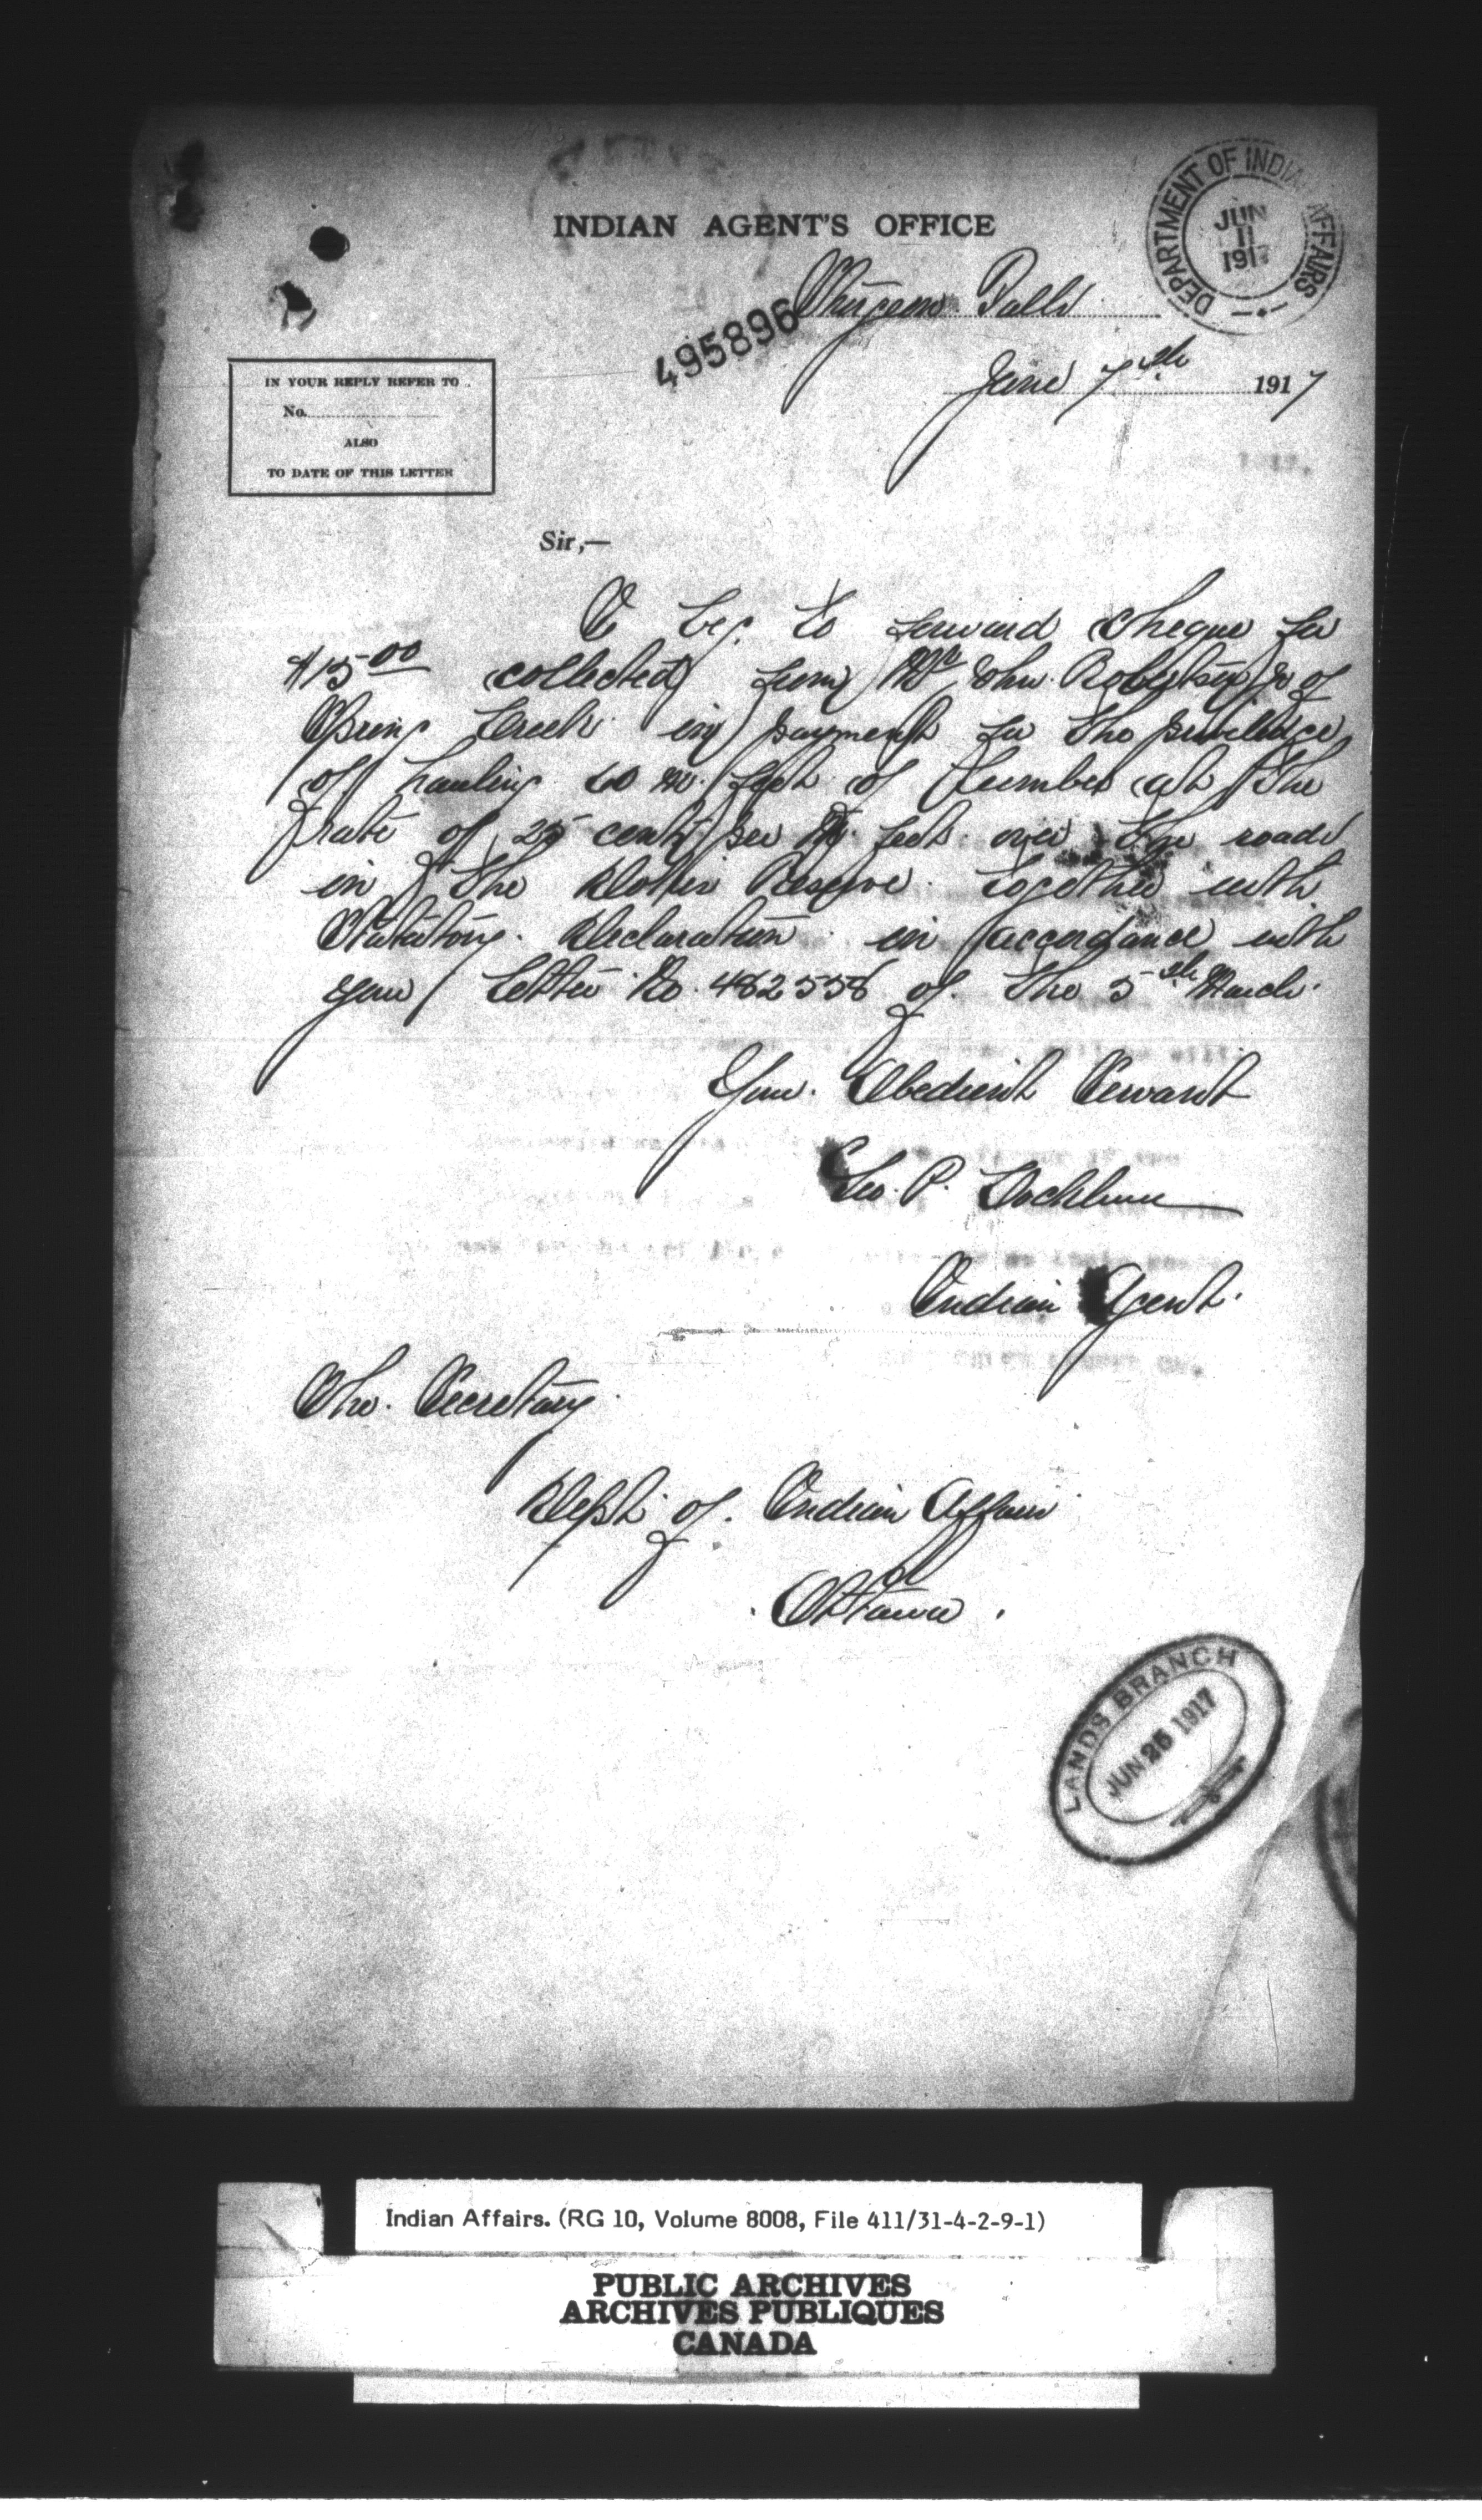 INDIAN AGENT'S OFFICE
DEPARTMENT OF INDIAN AFFAIRS
JUN
11
1917
Sturgeon Falls
495896
June 7th 1917
IN YOUR REPLY REFER TO
No.
ALSO
TO DATE OF THIS LETTER
Sir,—
I beg to forward cheque for
$15.00 collected from Mr John Robertson Jr of
Spring Creek in payment for the privilege
of hauling 60 M. feet of Lumber at the
rate of 25 cents per M. feet over the roads
in the Dokis Reserve together with
Statutory Declaration in accordance with
your Letter No. 482558 of the 5th March.
Your Obedient Servant
Geo. P. Cockburn
Indian Agent.
The Secretary
Dept. of Indian Affairs
Ottawa.
LANDS BRANCH
JUN 26 1917
Indian Affairs. (RG 10, Volume 8008, File 411/31-4-2-9-1)
PUBLIC ARCHIVES
ARCHIVES PUBLIQUES
CANADA